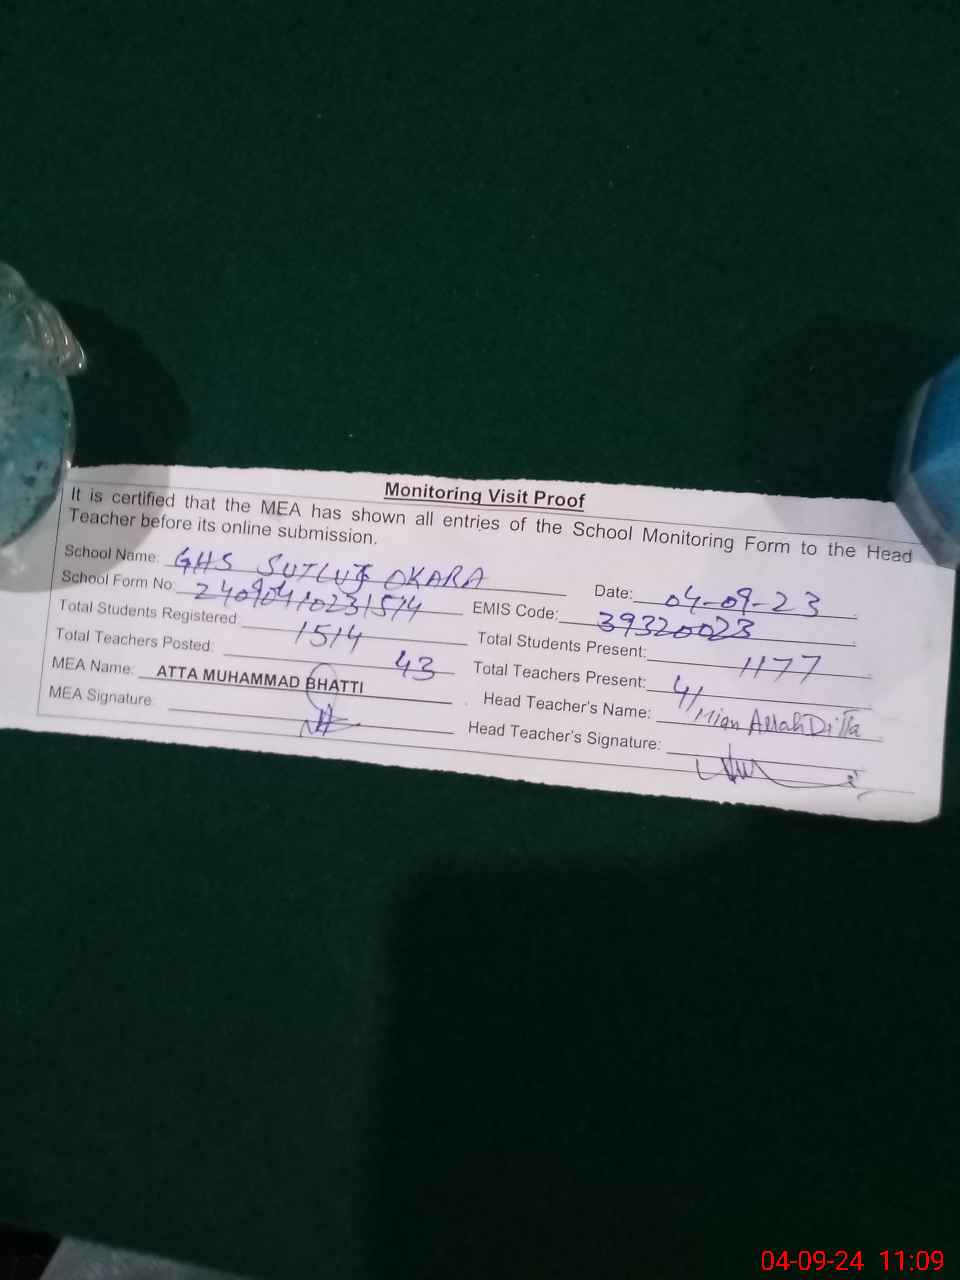 Monitoring Visit Proof
It is certified that the MEA has shown all entries of the School Monitoring Form to the Head
Teacher before its online submission.
School Name: GHS SUTLUJ OKARA Date: 04-09-23
School Form No: 24090410231514 EMIS Code: 39320023
Total Students Registered: 1514 Total Students Present: 1177
Total Teachers Posted: 43 Total Teachers Present: 41
MEA Name: ATTA MUHAMMAD BHATTI Head Teacher's Name: Mian Allah Ditta
MEA Signature: Head Teacher's Signature:
04-09-24 11:09